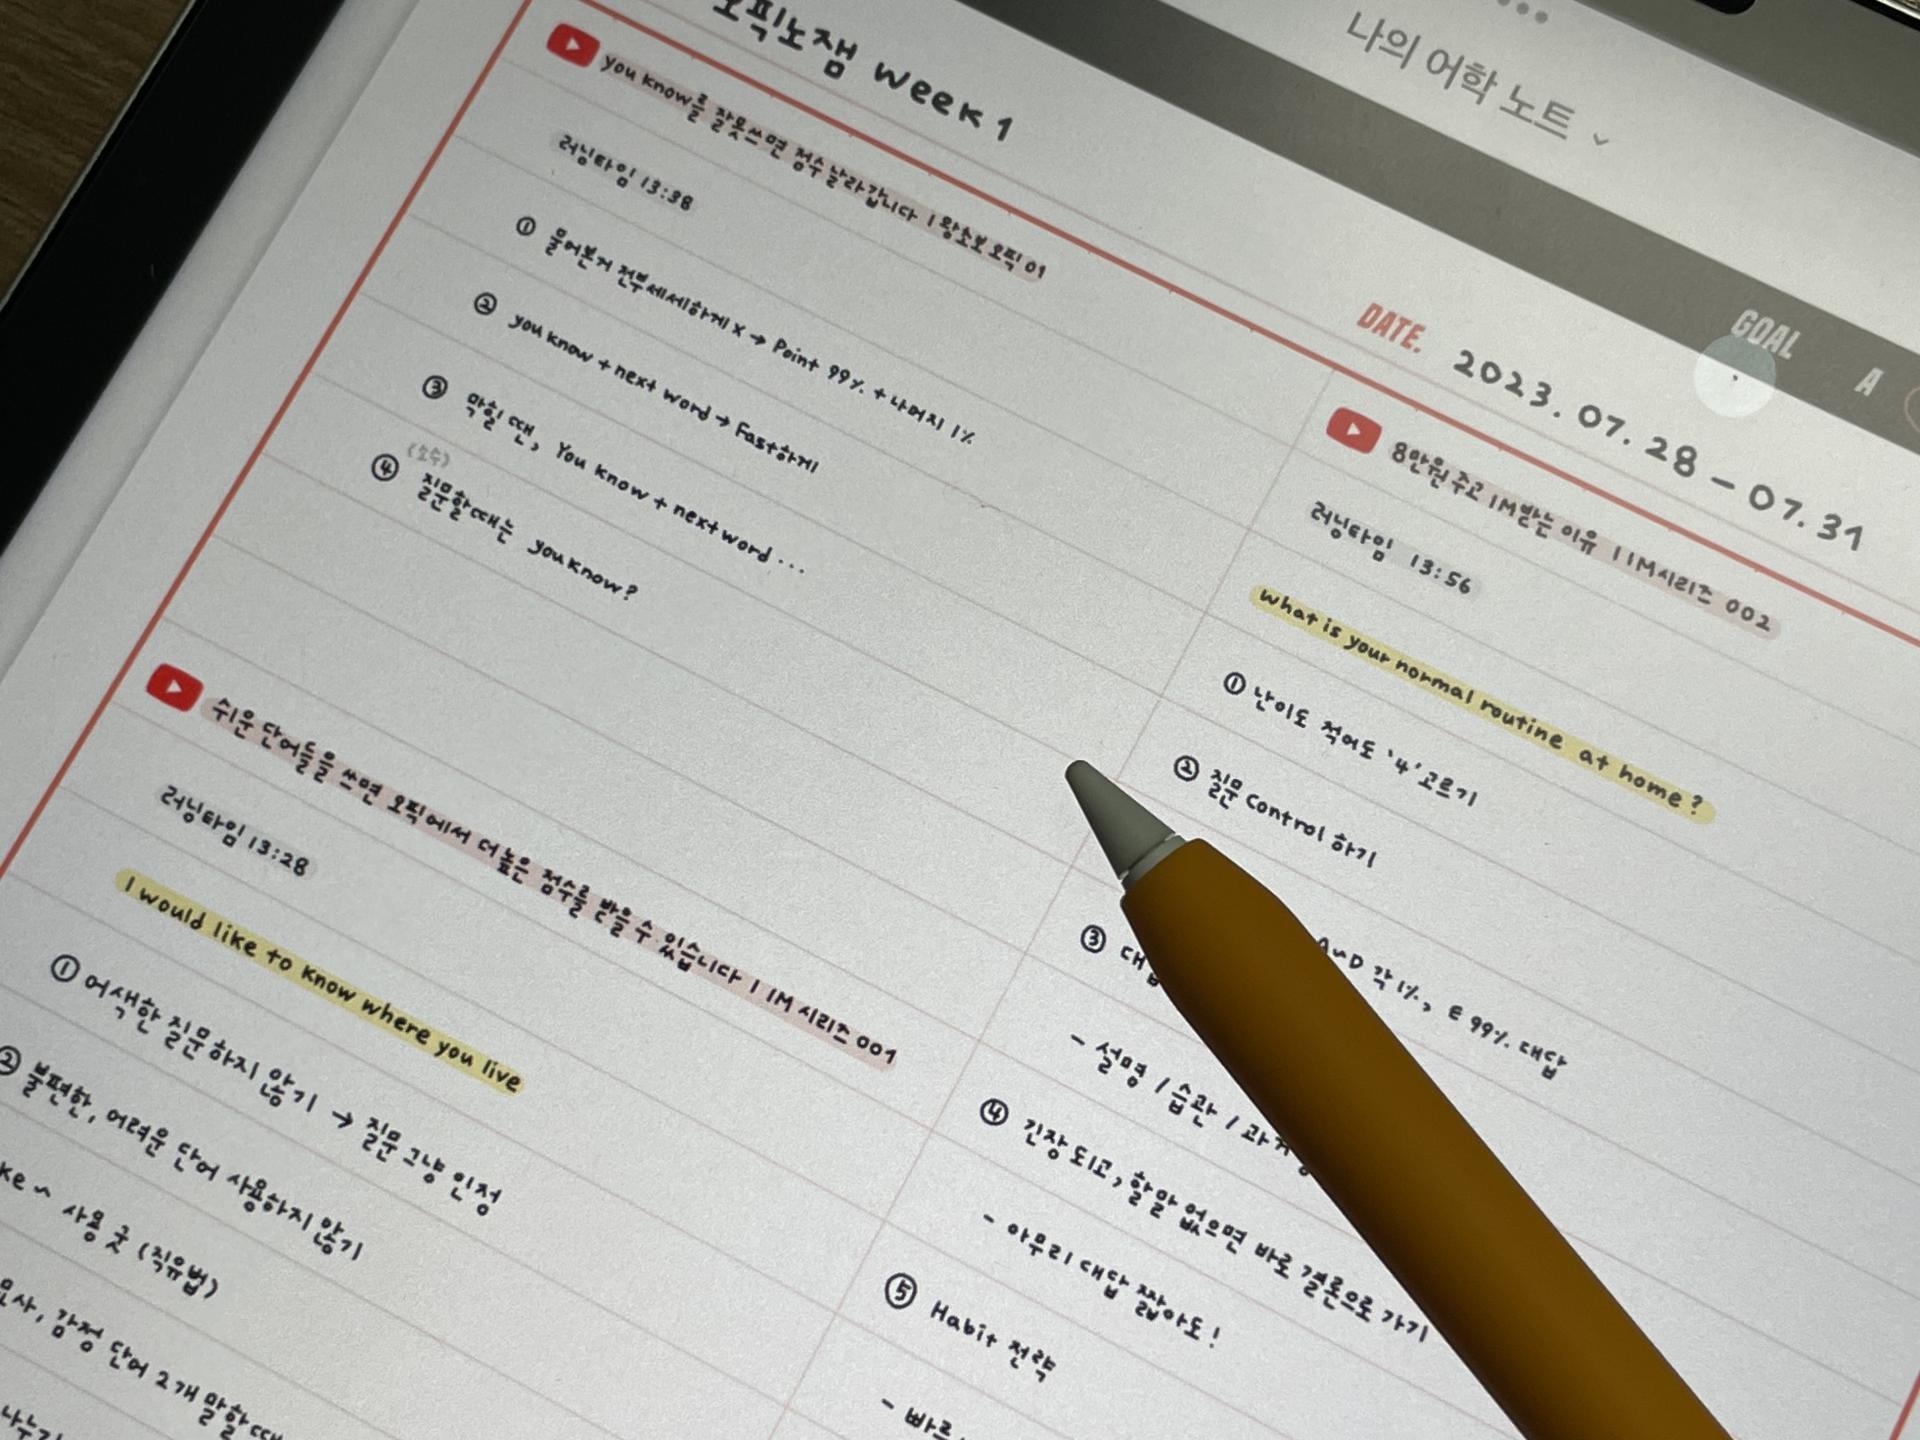 나의 어학 노트
오픽노잼 week 1
DATE. 2023. 07. 28 - 07. 31
GOAL A
you know를 잘못쓰면 점수 날라갑니다 | 왕초보 오픽 01
러닝타임 13:38
① 물어본거 전부 세세하게 x → Point 99% + 나머지 1%
② you know + next word → Fast하게
③ 막힐 땐, You know + next word ...
(소수)
④ 질문할 때는 you know?
쉬운 단어들을 쓰면 오픽에서 더 높은 점수를 받을 수 있습니다 | IM 시리즈 001
러닝타임 13:28
I would like to know where you live
① 어색한 질문하지 않기 → 질문 그냥 인정
② 불편한, 어려운 단어 사용하지 않기
ke ~ 사용 굿 (직유법)
사, 감정 단어 2개 말할때
8만원 주고 IM받는 이유 | IM시리즈 002
러닝타임 13:56
what is your normal routine at home?
① 난이도 적어도 '4' 고르기
② 질문 control 하기
③ A~D 각 1%, E 99% 대답
- 설명 / 습관 / 과거
④ 긴장 되고, 할말 없으면 바로 결론으로 가기
- 아무리 대답 짧아도!
⑤ Habit 전략
- 빠르